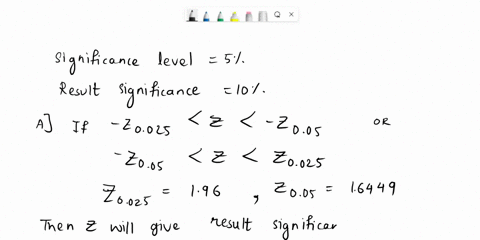 Significance level = 5%.
Result significance = 10%.
A] If -Z0.025 < Z < -Z0.05 OR
-Z0.05 < Z < Z0.025
Z0.025 = 1.96 , Z0.05 = 1.6449
Then Z will give result significan